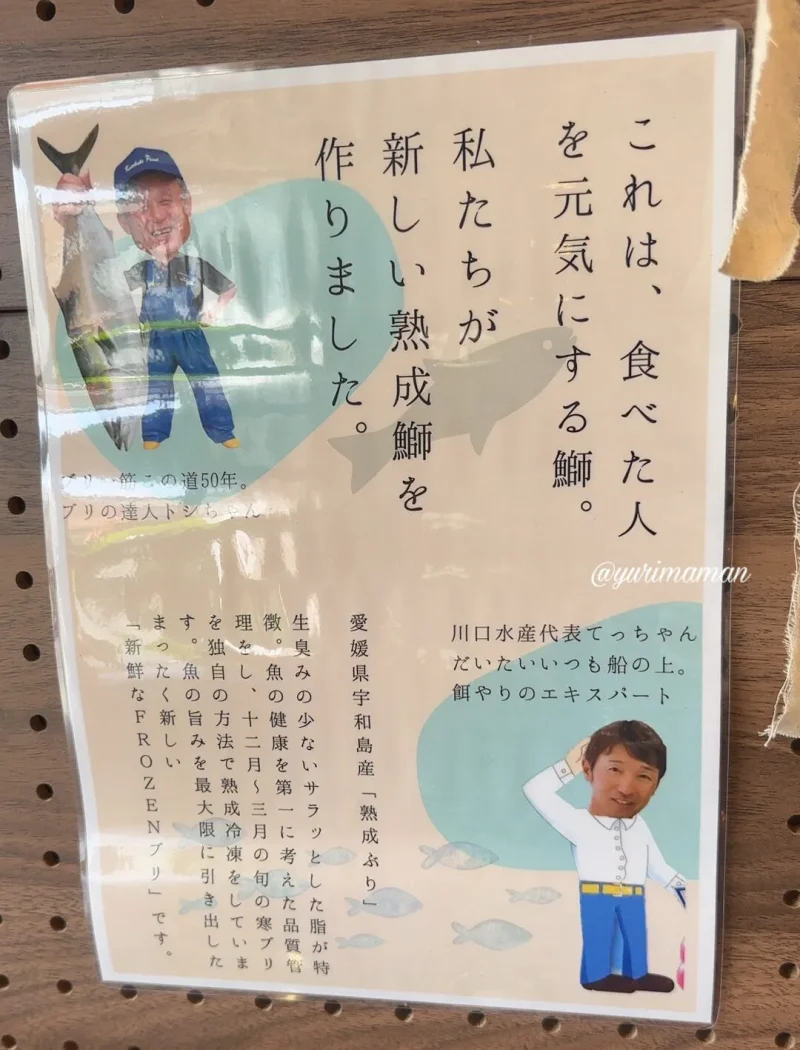 これは、食べた人
を元気にする鰤。
私たちが
新しい熟成鰤を
作りました。
ブリ一筋この道50年。
ブリの達人トシちゃん
@yurimaman
川口水産代表てっちゃん
だいたいいつも船の上。
餌やりのエキスパート
愛媛県宇和島産「熟成ぶり」
生臭みの少ないサラッとした脂が特
徴。魚の健康を第一に考えた品質管
理をし、十二月～三月の旬の寒ブリ
を独自の方法で熟成冷凍をしていま
す。魚の旨みを最大限に引き出した
まったく新しい
「新鮮なFROZENブリ」です。